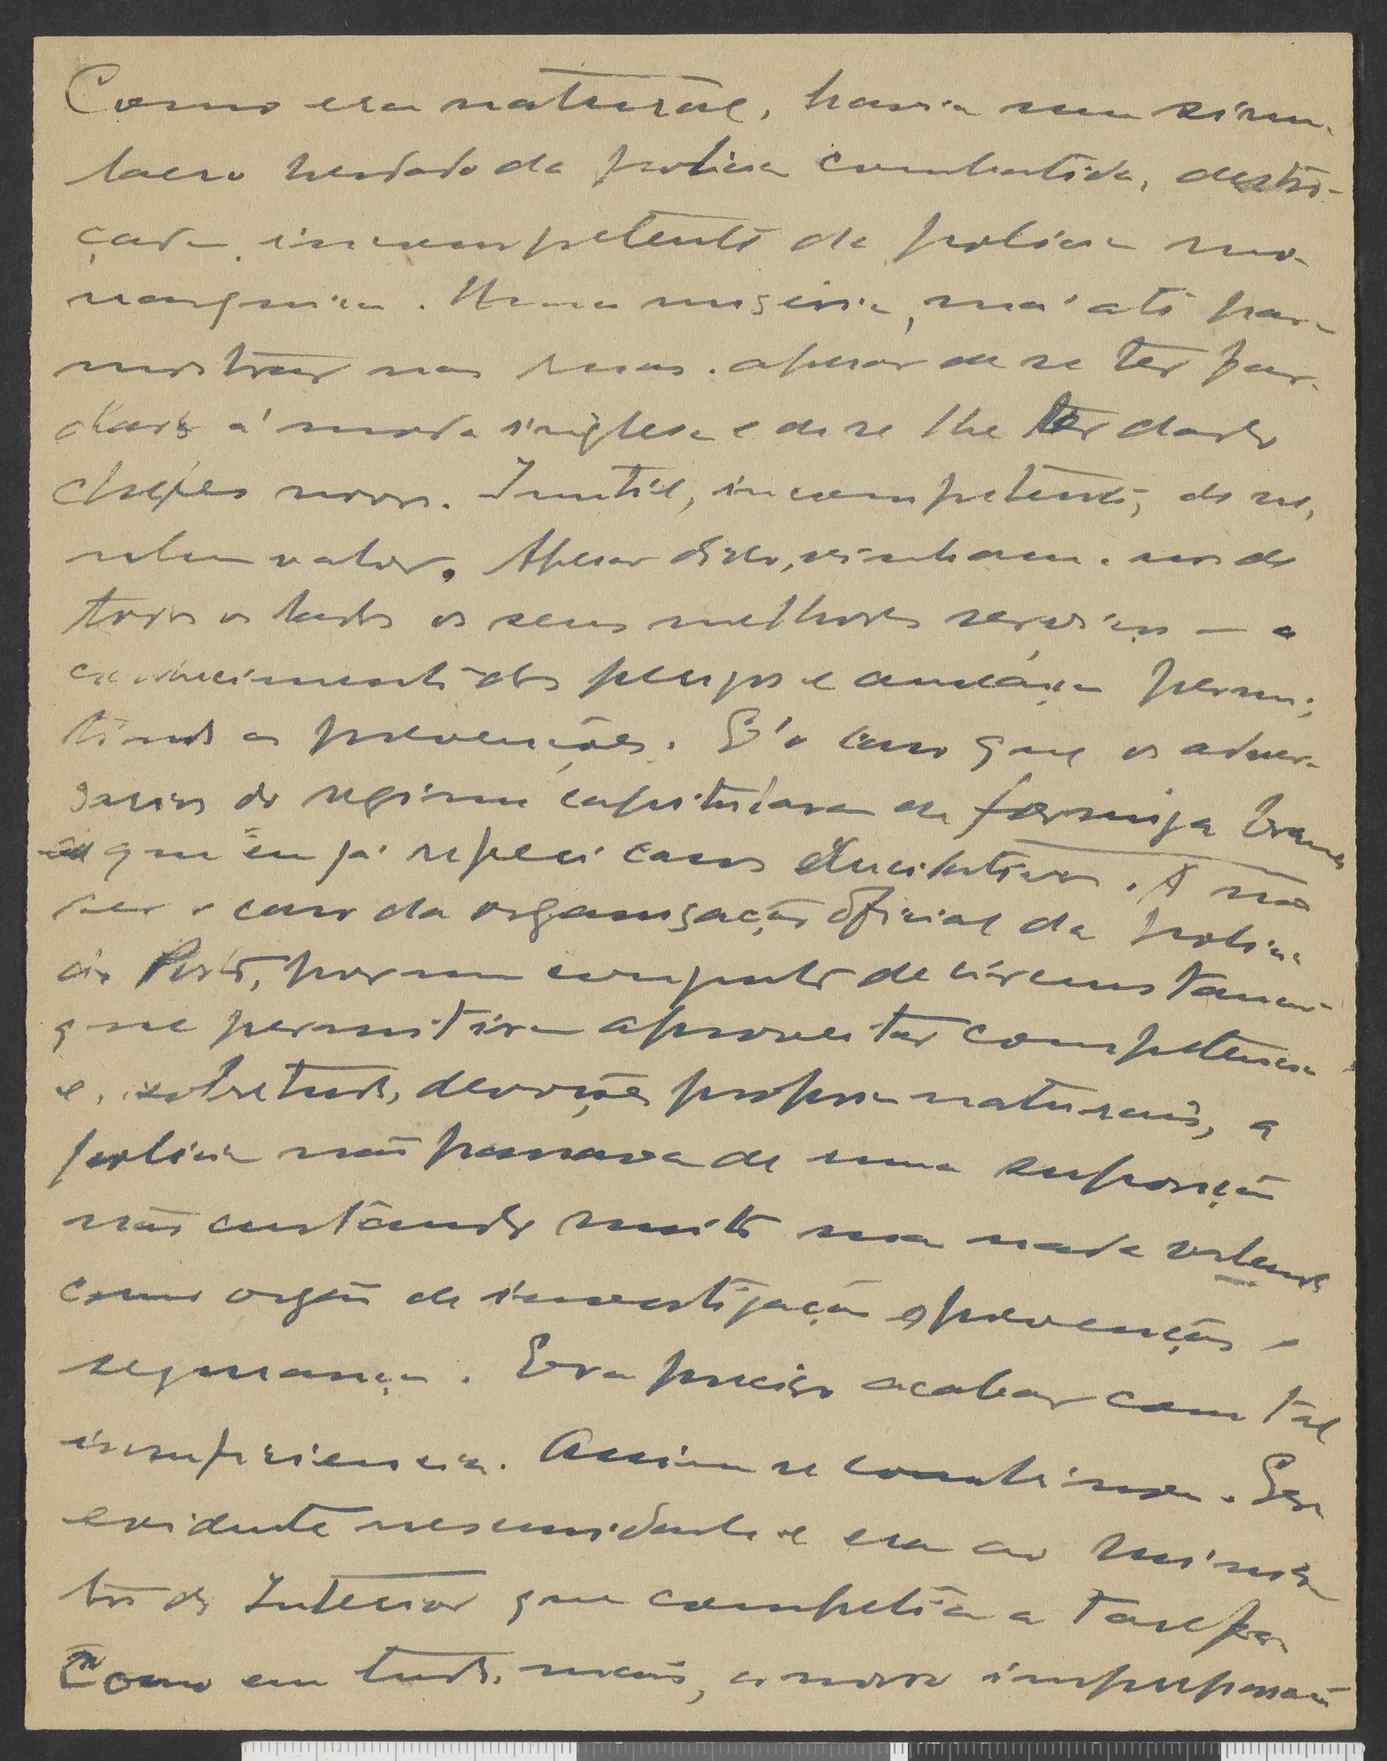 Como era natural, havia um simu-
lacro herdado da policia combatida, destro-
çada, incompetente da policia mo-
narquica. Uma miseria, má até para
mostrar nas ruas. apesar de se ter far-
dado á moda inglesa e de se lhe ter dado
chefes novos. Inutil, incompetente, de ne-
nhum valor. Apesar disso, vinham-nos de
todos os lados os seus melhores serviços — o
conhecimento dos perigos e ameaças permi-
tindo as prevenções. E' o caso que os adver-
sarios do regimen capitulavam de formiga branca
e que eu já referi casos elucidativos. A não
ser o caso da organização oficial da policia
do Porto, por um conjunto de circumstancias
que permitira aproveitar competencia
e, sobretudo, devoções propria naturais, a
policia não passava de uma suposição
não custando muito mas nada valendo
como orgão de investigação e prevenção e
segurança. Era preciso acabar com tal
insuficiencia. Assim se combinou. Era
evidente necessidade e era ao Minis-
tro do Interior que competia a tarefa.
Como em tudo, mais, a nossa